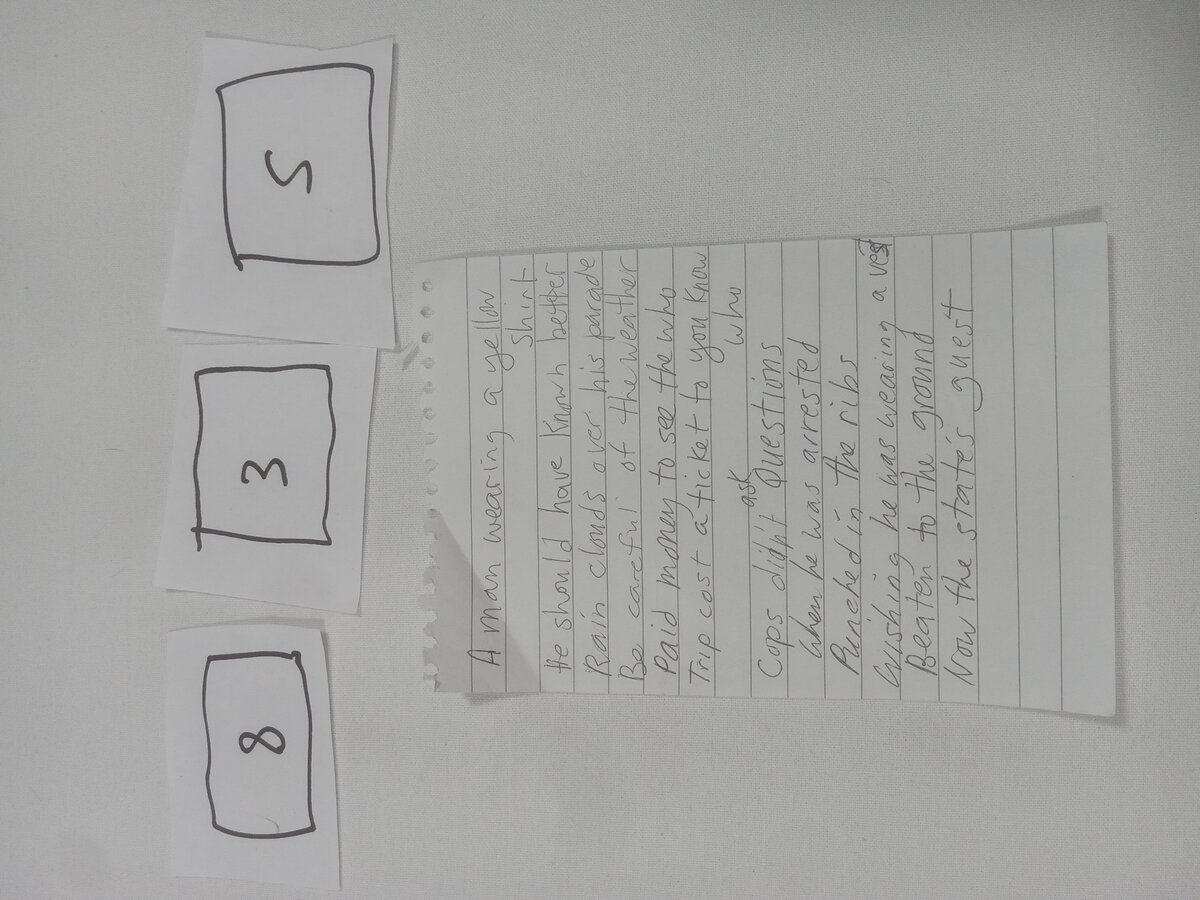 8
3
5
A man wearing a yellow
shirt
He should have known better
Rain clouds over his parade
Be careful of the weather
Paid money to see the who
Trip cost a ticket to you know
who
Cops didn't ask Questions
when he was arrested
Punched in the ribs
Wishing he was wearing a vest
Beaten to the ground
Now the state's guest